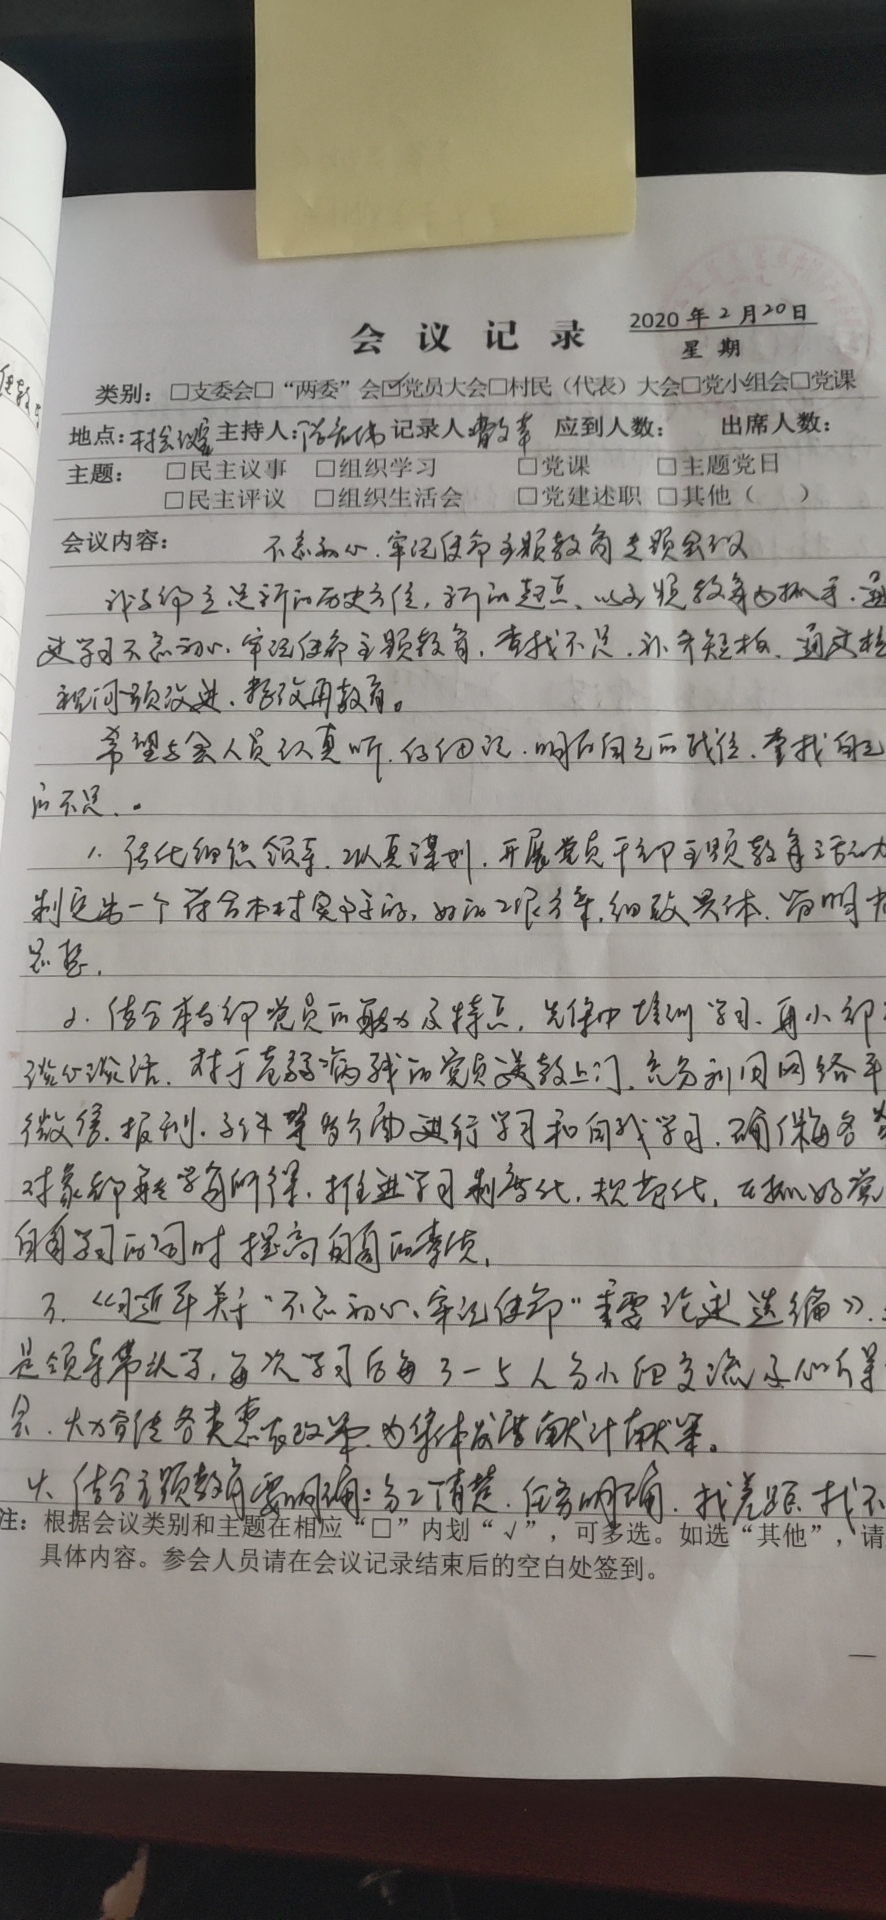 会议记录
2020年2月20日
星期
类别：□支委会□“两委”会☑党员大会□村民（代表）大会□党小组会□党课
地点：村会议室 主持人： 记录人 应到人数： 出席人数：
主题： □民主议事 □组织学习 □党课 □主题党日
□民主评议 □组织生活会 □党建述职 □其他（ ）
会议内容： 不忘初心、牢记使命主题教育专题会议
我支部立足新的历史方位，新的起点、以主题教育为抓手，通
过学习不忘初心、牢记使命主题教育，查找不足，补齐短板，通过
问题改进、整改再教育。
希望与会人员认真听、仔细记、明白自己的责任、查找自己
的不足、。
1. 强化组织领导、认真谋划，开展党员干部主题教育活动
制定出一个符合本村实际的，好的方案，细致具体、简明
2. 结合本支部党员的能力及特点，先集中培训学习、再小部
谈心谈话，对于老弱病残的党员送教上门，充分利用网络平
微信、报刊、进行学习和自我学习，确保每名
对象都能学有所得，推进学习制度化，规范化，在抓好党
自身学习的同时提高自身的素质，
3.《习近平关于“不忘初心、牢记使命”重要论述选编》，
是领导带头学，每次学习后每3-5人分小组交流及心得
会，大力宣传各类惠农政策，为集体发展献计献策。
4、结合主题教育要明确：分工清楚，任务明确，找差距，找不
注：根据会议类别和主题在相应“□”内划“√”，可多选。如选“其他”，请
具体内容。参会人员请在会议记录结束后的空白处签到。